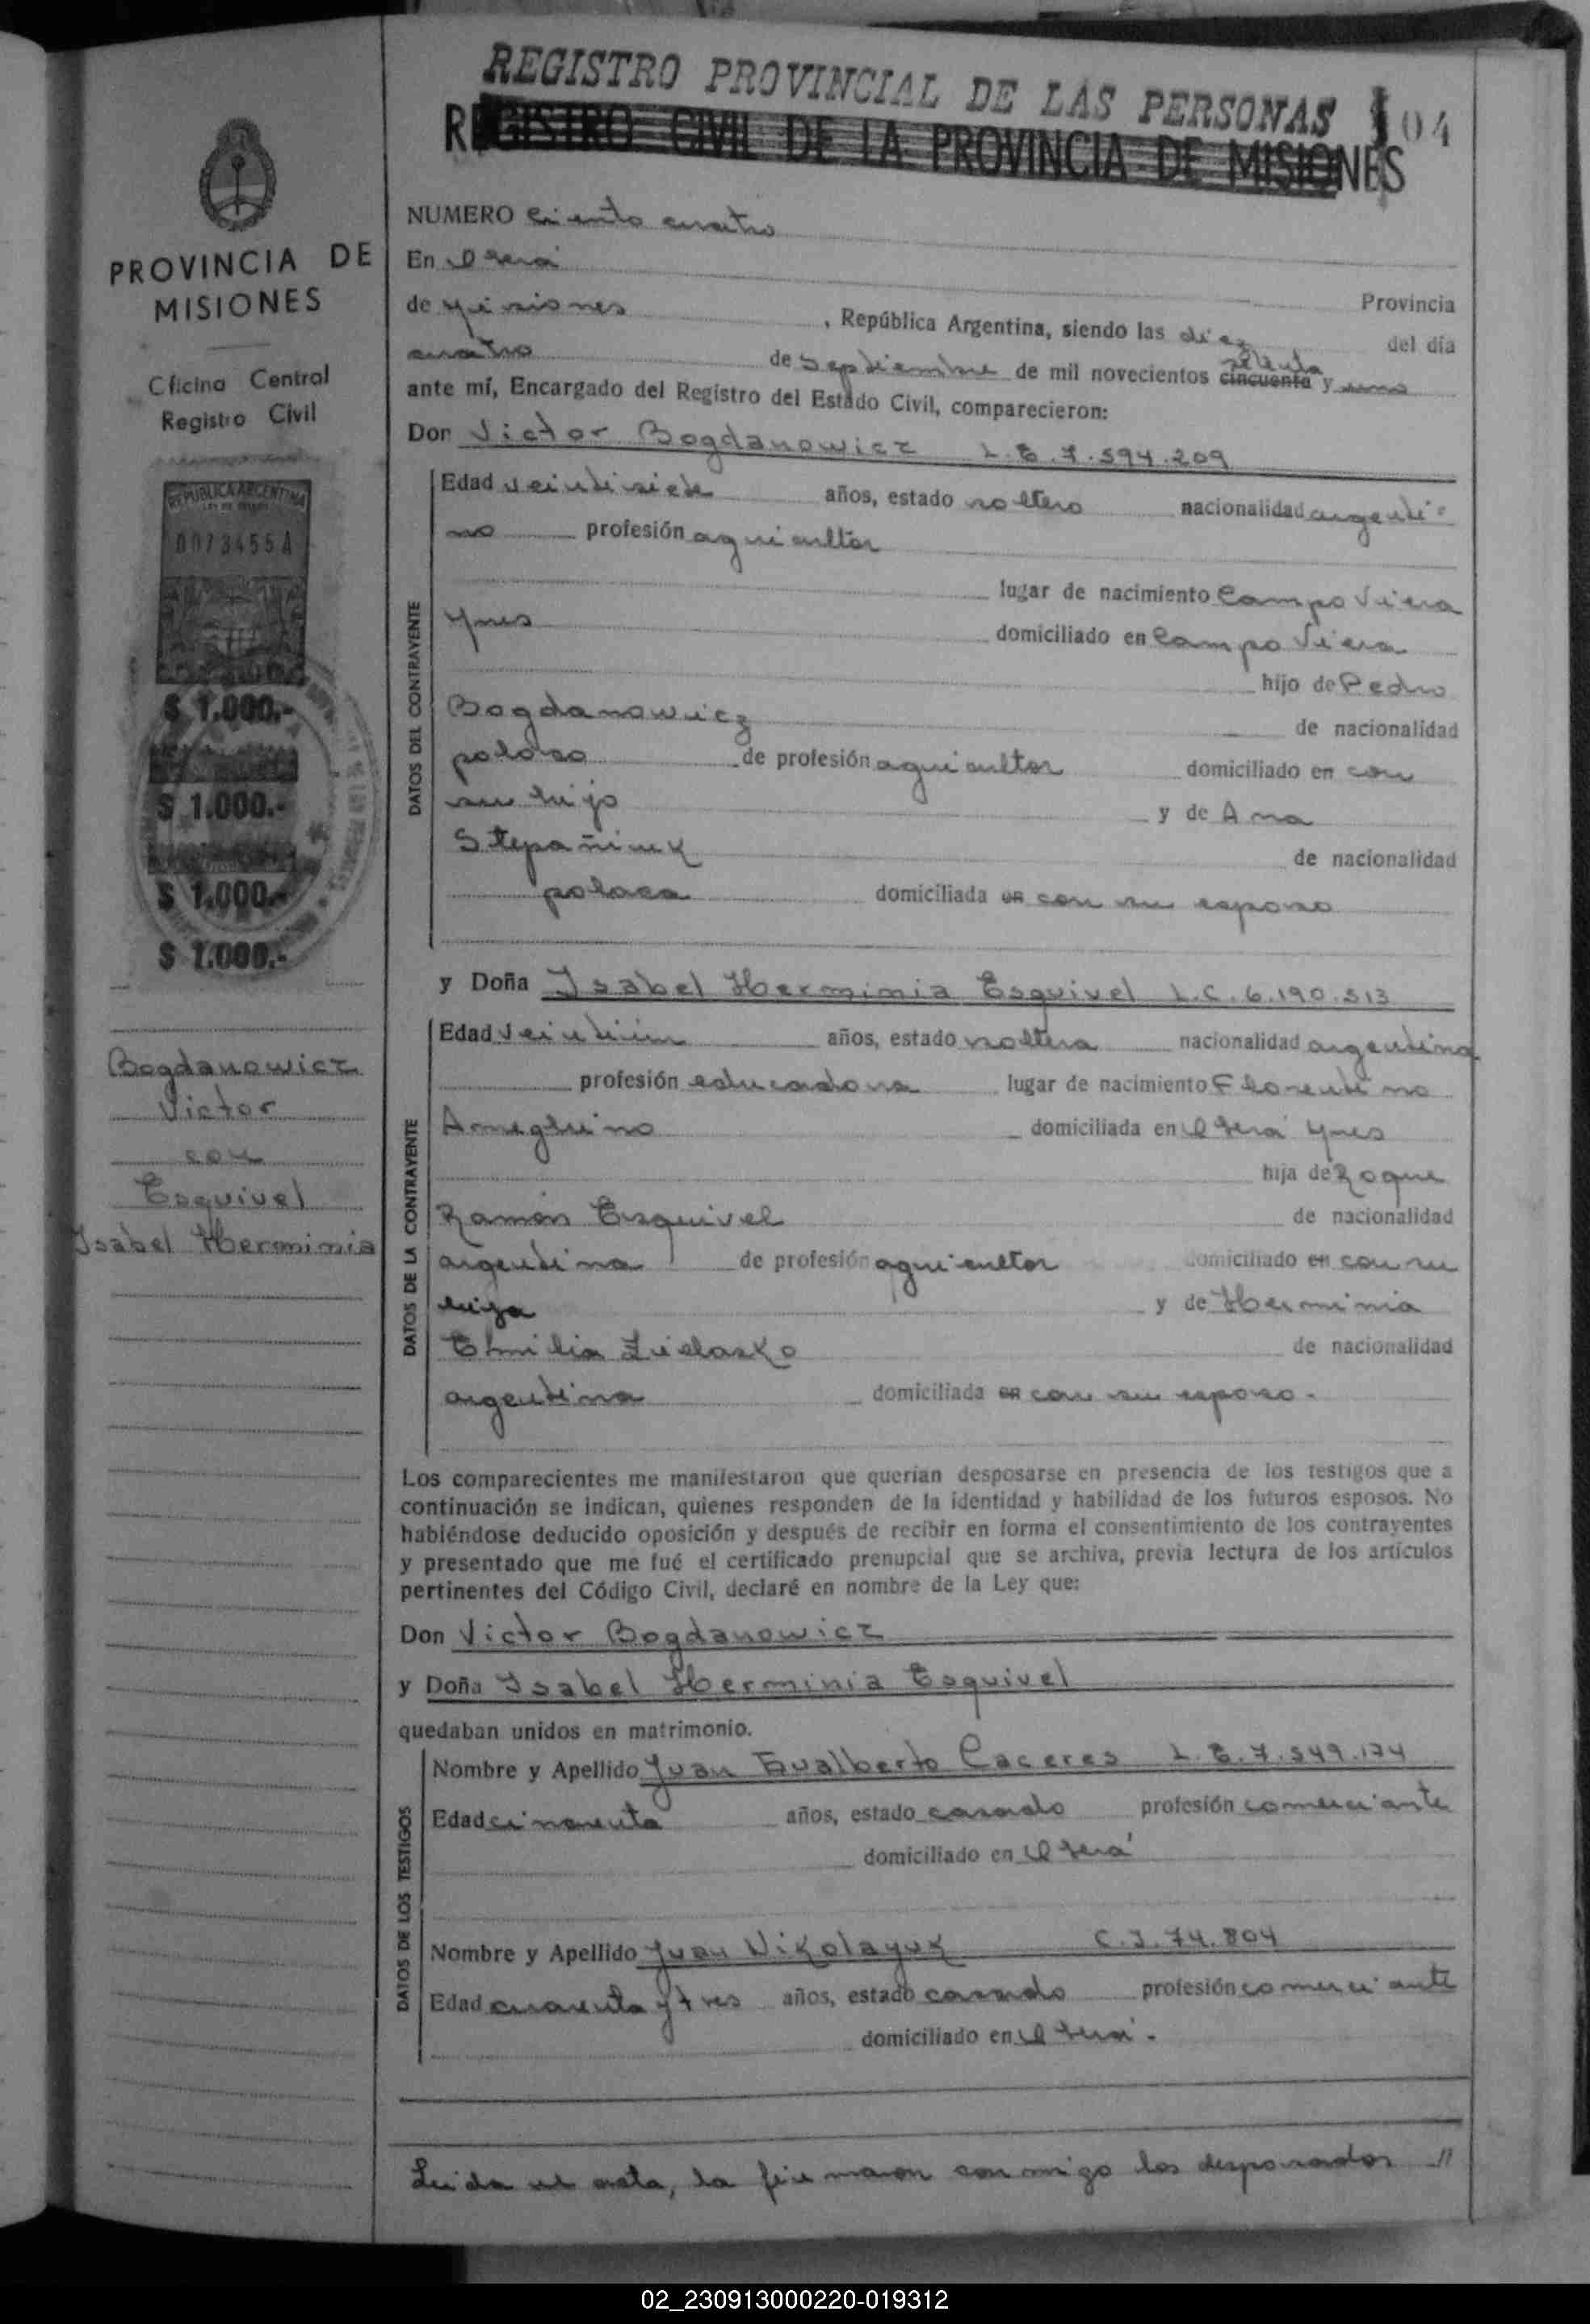 REGISTRO PROVINCIAL DE LAS PERSONAS 104
REGISTRO CIVIL DE LA PROVINCIA DE MISIONES
PROVINCIA DE
MISIONES
Oficina Central
Registro Civil
REPUBLICA ARGENTINA
0073455 A
$ 1.000.-
$ 1.000.-
$ 1.000.-
$ 1.000.-
Bogdanowicz
Victor
con
Esquivel
Isabel Herminia
NUMERO Ciento cuatro
En Oberá
de Misiones Provincia
, República Argentina, siendo las diez del día
cuatro de septiembre de mil novecientos cincuenta setenta y uno
ante mí, Encargado del Registro del Estado Civil, comparecieron:
Don Victor Bogdanowicz L.E.7.594.209
DATOS DEL CONTRAYENTE
Edad veintisiete años, estado soltero nacionalidad argenti-
no profesión agricultor
lugar de nacimiento Campo Viera
Mnes domiciliado en Campo Viera
hijo de Pedro
Bogdanowicz de nacionalidad
polaco de profesión agricultor domiciliado en con
su hijo y de Ana
Stepañiuk de nacionalidad
polaca domiciliada en con su esposo
y Doña Isabel Herminia Esquivel L.C.6.190.513
DATOS DE LA CONTRAYENTE
Edad veintiún años, estado soltera nacionalidad argentina
profesión educadora lugar de nacimiento Florentino
Ameghino domiciliada en Oberá Mnes
hija de Roque
Ramón Esquivel de nacionalidad
argentina de profesión agricultor domiciliado en con su
hija y de Herminia
Emilia Zielasko de nacionalidad
argentina domiciliada en con su esposo.
Los comparecientes me manifestaron que querían desposarse en presencia de los testigos que a
continuación se indican, quienes responden de la identidad y habilidad de los futuros esposos. No
habiéndose deducido oposición y después de recibir en forma el consentimiento de los contrayentes
y presentado que me fué el certificado prenupcial que se archiva, previa lectura de los artículos
pertinentes del Código Civil, declaré en nombre de la Ley que:
Don Victor Bogdanowicz
y Doña Isabel Herminia Esquivel
quedaban unidos en matrimonio.
DATOS DE LOS TESTIGOS
Nombre y Apellido Juan Eualberto Caceres L.E.7.549.174
Edad cincuenta años, estado casado profesión comerciante
domiciliado en Oberá
Nombre y Apellido Juan Nikolayuk C.I.74.804
Edad cuarenta y tres años, estado casado profesión comerciante
domiciliado en Oberá.
Leida el acta, la firmaron conmigo los desposados //
02_230913000220-019312